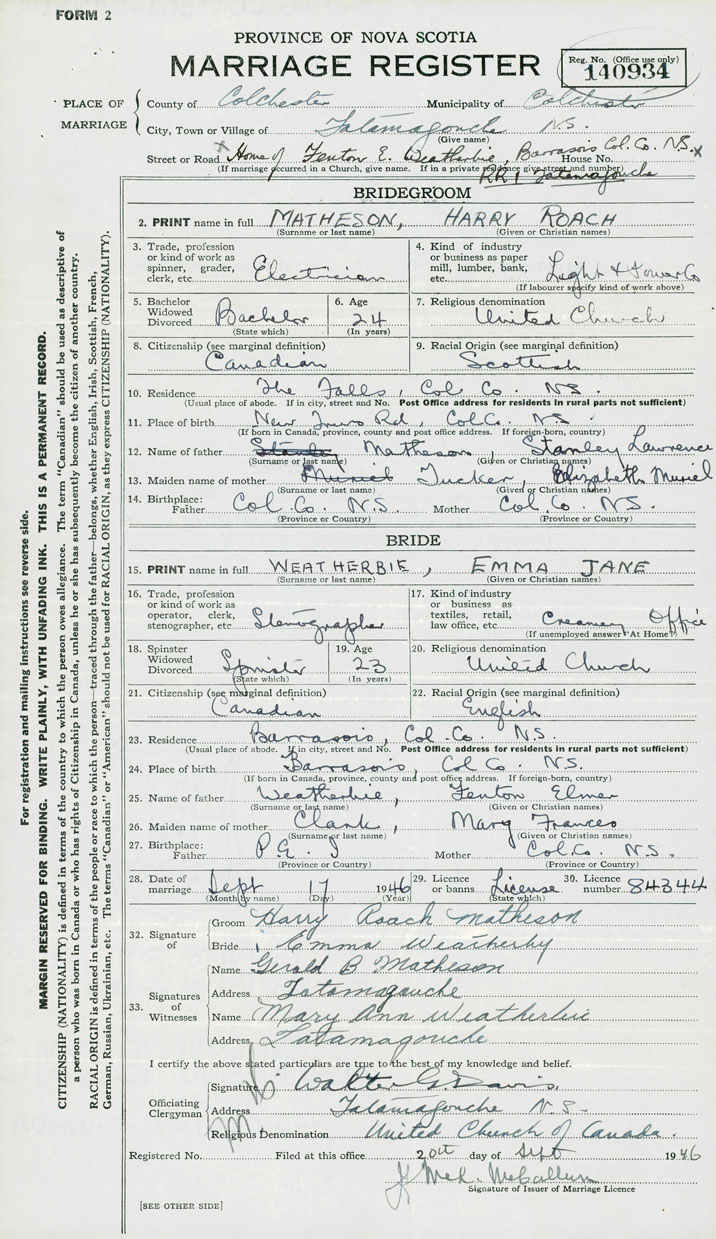 FORM 2
PROVINCE OF NOVA SCOTIA
MARRIAGE REGISTER
Reg. No. (Office use only)
140934
PLACE OF MARRIAGE
County of Colchester Municipality of Colchester
City, Town or Village of Tatamagouche N.S.
(Give name)
Street or Road x Home of Fenton E. Weatherbie, Barrasois Col. Co. N.S. x House No.
(If marriage occurred in a Church, give name. If in a private residence give street and number)
RR 1 Tatamagouche
BRIDEGROOM
2. PRINT name in full MATHESON, HARRY ROACH
(Surname or last name) (Given or Christian names)
3. Trade, profession or kind of work as spinner, grader, clerk, etc. Electrician
4. Kind of industry or business as paper mill, lumber, bank, etc. Light & Power Co
(If labourer specify kind of work above)
5. Bachelor Widowed Divorced Bachelor
(State which)
6. Age 24
(In years)
7. Religious denomination United Church
8. Citizenship (see marginal definition) Canadian
9. Racial Origin (see marginal definition) Scottish
10. Residence The Falls, Col Co NS.
(Usual place of abode. If in city, street and No. Post Office address for residents in rural parts not sufficient)
11. Place of birth New Rd, Col Co. NS.
(If born in Canada, province, county and post office address. If foreign-born, country)
12. Name of father Matheson, Stanley Lawrence
(Surname or last name) (Given or Christian names)
13. Maiden name of mother Muriel Tucker, Elizabeth Muriel
(Surname or last name) (Given or Christian names)
14. Birthplace: Father Col. Co. N.S Mother Col. Co. N.S.
(Province or Country) (Province or Country)
BRIDE
15. PRINT name in full WEATHERBIE, EMMA JANE
(Surname or last name) (Given or Christian names)
16. Trade, profession or kind of work as operator, clerk, stenographer, etc Stenographer
17. Kind of industry or business as textiles, retail, law office, etc. Creamery Office
(If unemployed answer "At Home")
18. Spinster Widowed Divorced Spinster
(State which)
19. Age 23
(In years)
20. Religious denomination United Church
21. Citizenship (see marginal definition) Canadian
22. Racial Origin (see marginal definition) English
23. Residence Barrasois, Col. Co. N.S.
(Usual place of abode. If in city, street and No. Post Office address for residents in rural parts not sufficient)
24. Place of birth Barrasois, Col Co. N.S.
(If born in Canada, province, county and post office address. If foreign-born, country)
25. Name of father Weatherbie, Fenton Elmer
(Surname or last name) (Given or Christian names)
26. Maiden name of mother Clark, Mary Frances
(Surname or last name) (Given or Christian names)
27. Birthplace: Father P.E.I Mother Col. Co. N.S.
(Province or Country) (Province or Country)
28. Date of marriage Sept 17 1946 29. Licence or banns License 30. Licence number 84344
(Month by name) (Day) (Year) (State which)
32. Signature of Groom Harry Roach Matheson
Bride Emma Weatherby
33. Signatures of Witnesses
Name Gerald B Matheson
Address Tatamagouche
Name Mary Ann Weatherbie
Address Tatamagouche
I certify the above stated particulars are true to the best of my knowledge and belief.
Officiating Clergyman
Signature Walter G Davis.
Address Tatamagouche N.S.
Religious Denomination United Church of Canada.
Registered No. Filed at this office 20th day of Sept 1946
J McK. McCallum
Signature of Issuer of Marriage Licence
[SEE OTHER SIDE]
For registration and mailing instructions see reverse side.
MARGIN RESERVED FOR BINDING. WRITE PLAINLY, WITH UNFADING INK. THIS IS A PERMANENT RECORD.
CITIZENSHIP (NATIONALITY) is defined in terms of the country to which the person owes allegiance. The term "Canadian" should be used as descriptive of
a person who was born in Canada or who has rights of Citizenship in Canada, unless he or she has subsequently become the citizen of another country.
RACIAL ORIGIN is defined in terms of the people or race to which the person—traced through the father—belongs, whether English, Irish, Scottish, French,
German, Russian, Ukrainian, etc. The terms "Canadian" or "American" should not be used for RACIAL ORIGIN, as they express CITIZENSHIP (NATIONALITY).